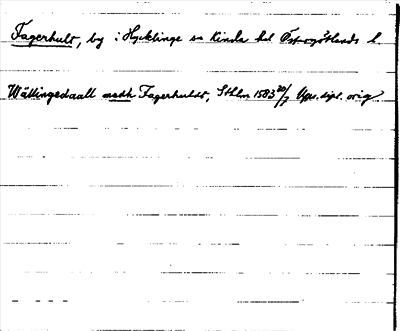 Fagerhult, by i Hycklinge sn Kinda hd Östergötlands l.
Wässingedaall medh Fagerhultt, Sthlm 1583 20/7 Upps. dipl. orig